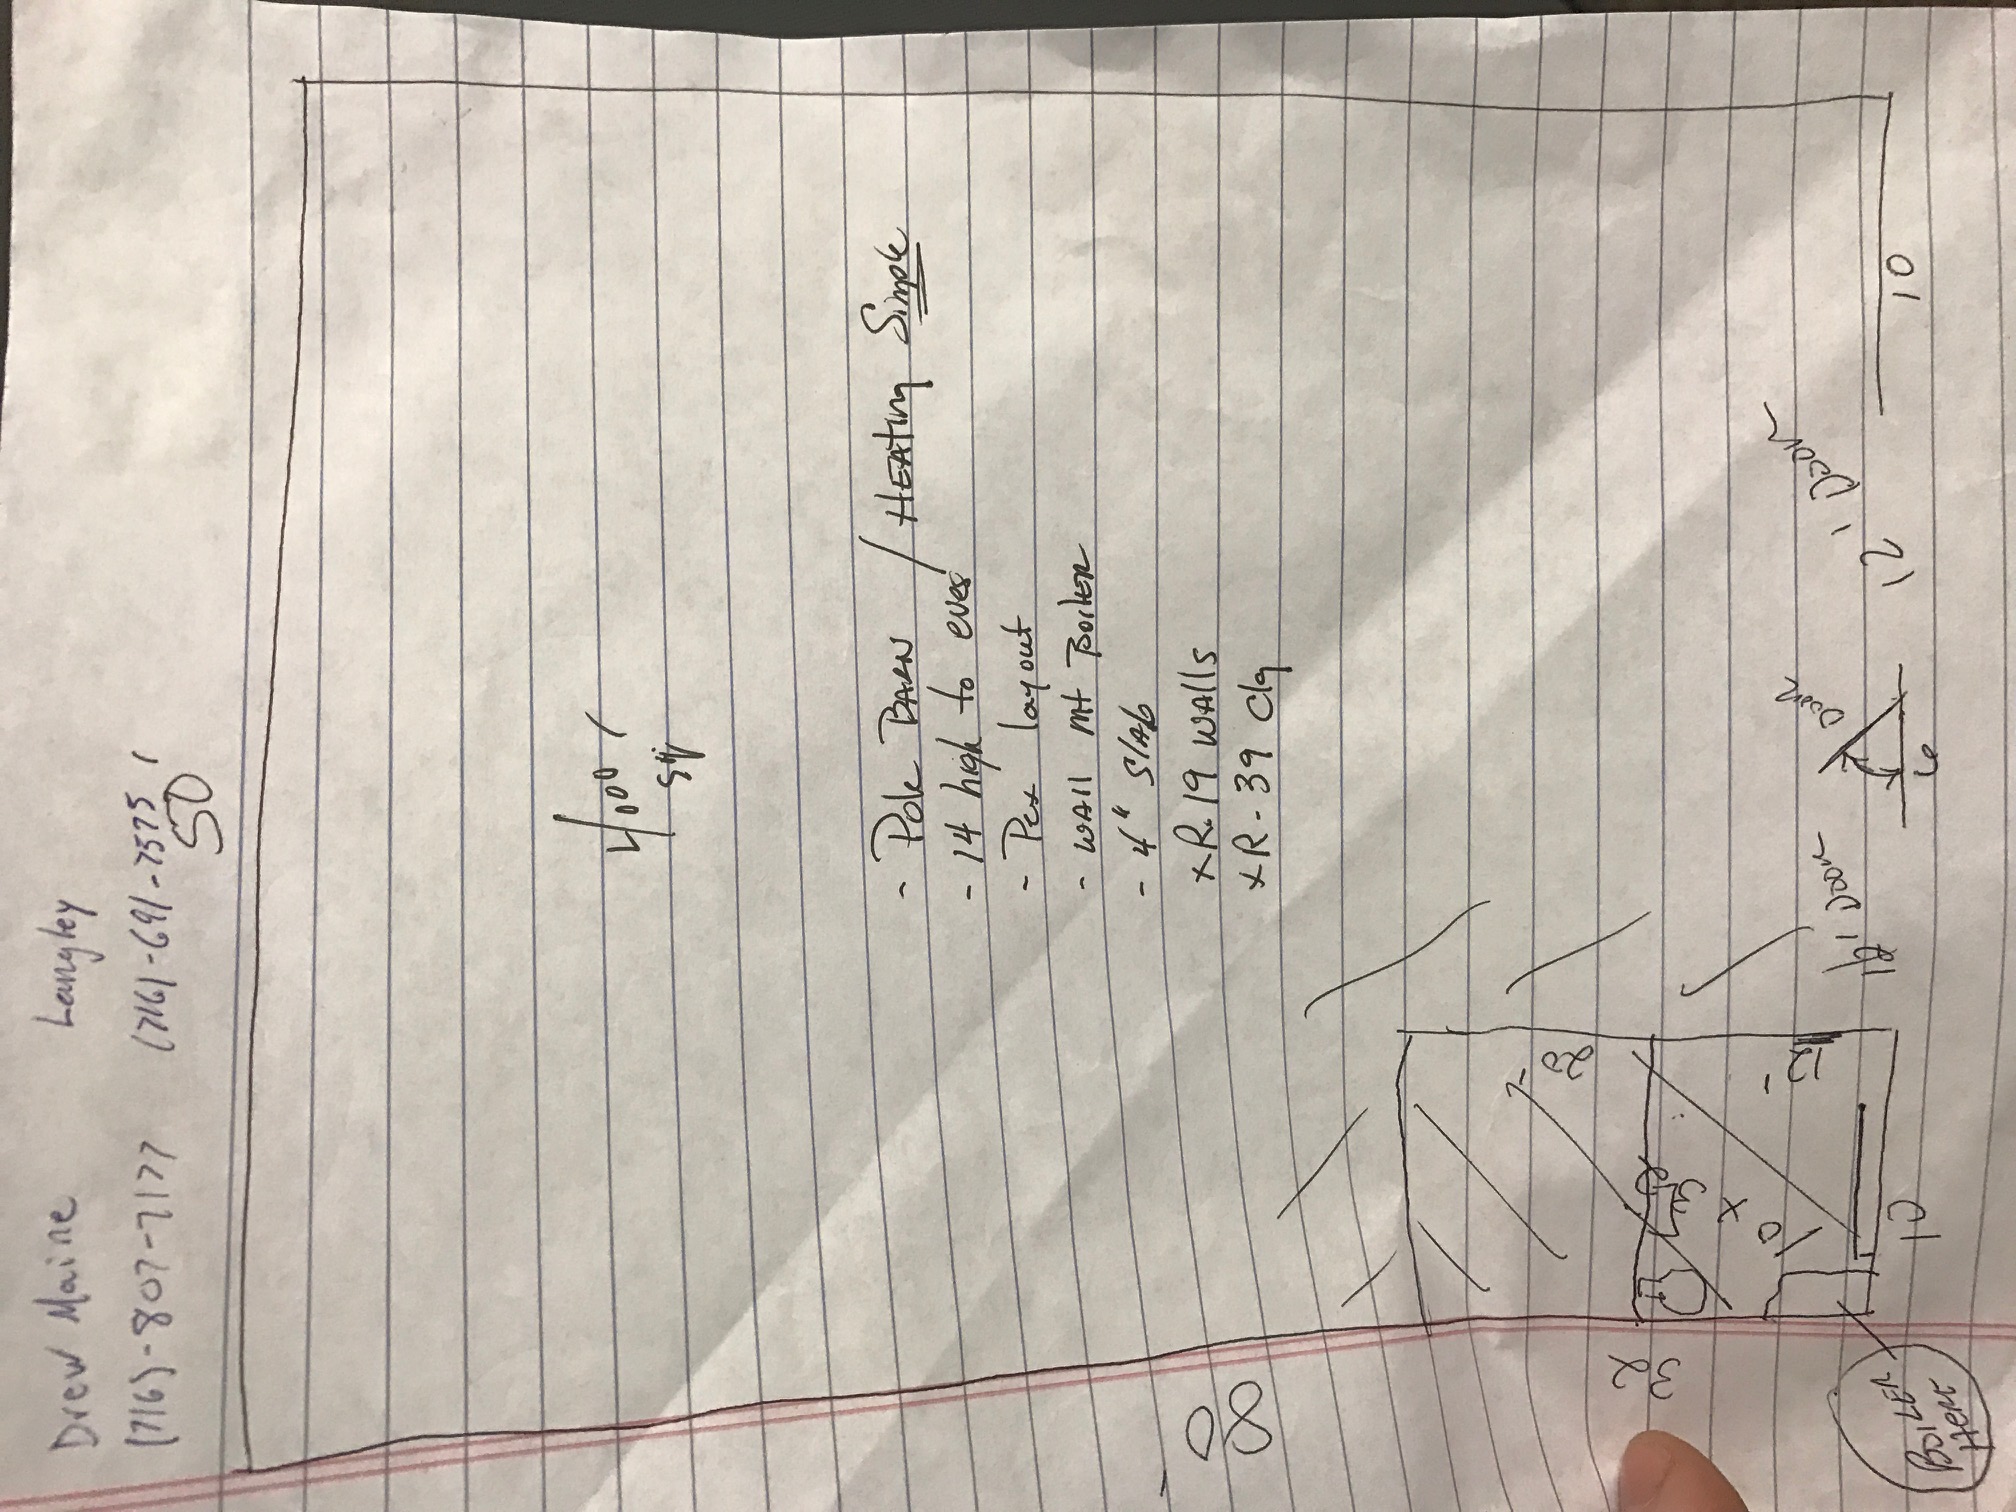 Drew Maine Langley
(716)-807-7177 (716)-691-7575
50'
4,000
sq
- Pole BARN / HEATING Simple
- 14 high to eves
- Pex layout
- WALL mt BOILER
- 4" SLAb
x R. 19 WALLS
x R - 39 Clg
80'
20'
32
10 x 32
12'
12' DOOR
DOOR
12' DOOR
6
10
10
BOILER
HERE